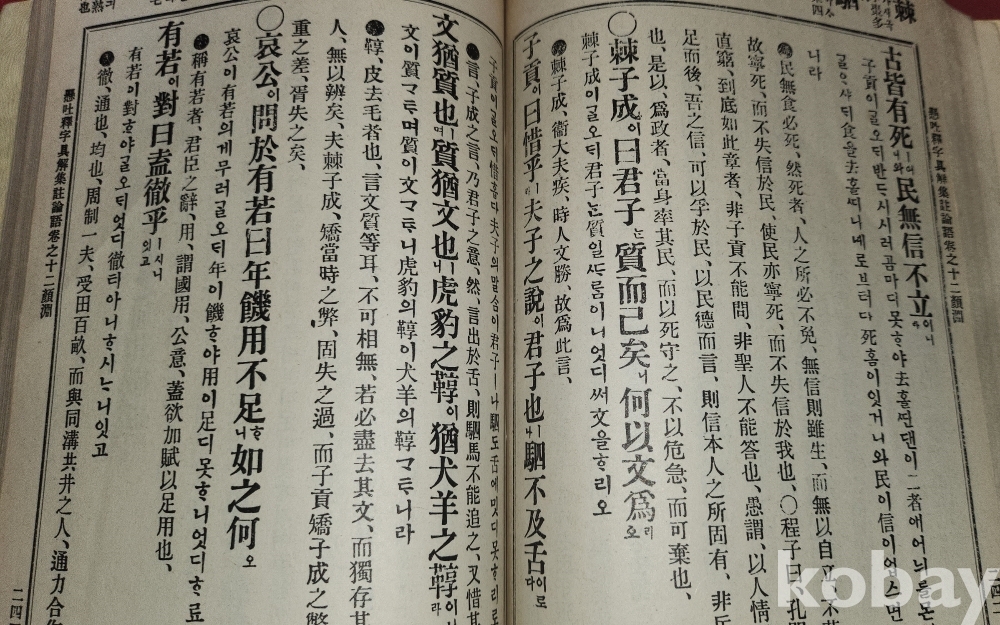 古皆有死ㅣ어니와民無信不立이니라
니라
民無食必死、然死者、人之所必不免、無信則雖生、而無以自立、不若
故寧死、而不失信於民、使民亦寧死、而不失信於我也、○程子曰孔門
直窮、到底如此章者、非子貢不能問、非聖人不能答也、愚謂、以人情
足而後、吾之信、可以孚於民、以民德而言、則信本人之所固有、非兵
也、是以、爲政者、當身率其民、而以死守之、不以危急、而可棄也、
○棘子成이曰君子는質而已矣니何以文爲리오
棘子成이ᄀᆞᆯ오ᄃᆡ君子ᄂᆞᆫ質일ᄯᆞᄅᆞᆷ이니엇디ᄡᅥ文을ᄒᆞ리오
棘子成、衞大夫疾、時人文勝、故爲此言、
子貢이曰惜乎ㅣ라夫子之說이君子也ㅣ나駟不及舌이로다
言、子成之言、乃君子之意、然、言出於舌、則駟馬不能追之、又惜其
文猶質也ㅣ며質猶文也ㅣ니虎豹之鞟이猶犬羊之鞟이니라
文이質ᄀᆞᄐᆞ며質이文ᄀᆞᄐᆞ니虎豹의鞟이犬羊의鞟ᄀᆞᄐᆞ니라
鞟、皮去毛者也、言文質等耳、不可相無、若必盡去其文、而獨存其
人、無以辨矣、夫棘子成、矯當時之弊、固失之過、而子貢矯子成之弊
重之差、胥失之矣、
○哀公이問於有若曰年饑用不足ᄒᆞ니如之何오
哀公이有若의게무러ᄀᆞᆯ오ᄃᆡ年이饑ᄒᆞ야用이足디못ᄒᆞ니엇디ᄒᆞ료
稱有若者、君臣之辭、用、謂國用、公意、蓋欲加賦以足用也、
有若이對曰盍徹乎ㅣ시니잇고
有若이對ᄒᆞ야ᄀᆞᆯ오ᄃᆡ엇디徹티아니ᄒᆞ시ᄂᆞ니잇고
徹、通也、均也、周制一夫、受田百畝、而與同溝共井之人、通力合作
懸吐釋字具解集註論語卷之十二顏淵
kobay